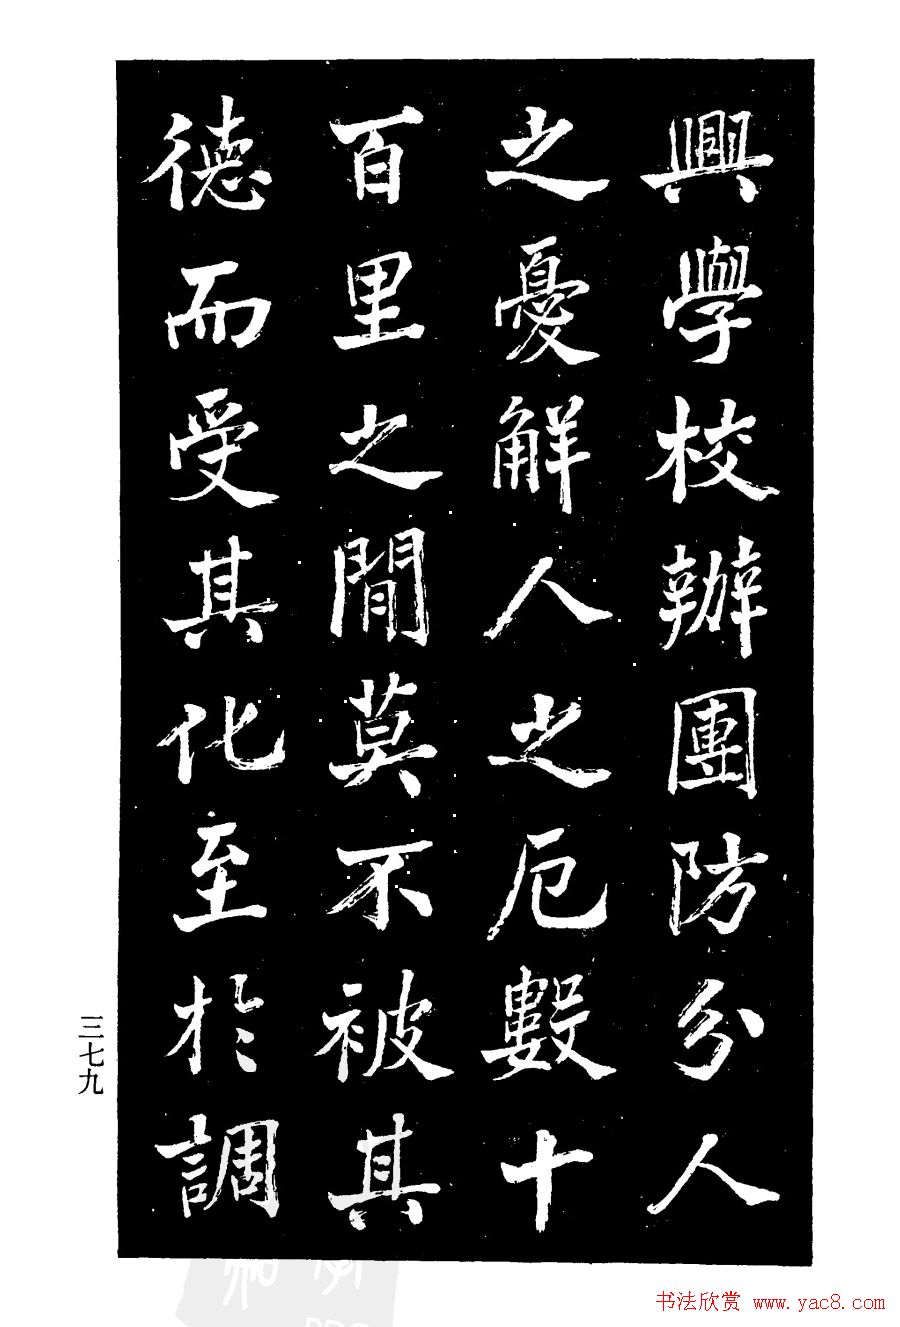 興學校辦團防分人
之憂解人之厄數十
百里之間莫不被其
德而受其化至於調
三七九
书法欣赏 www.yac8.com